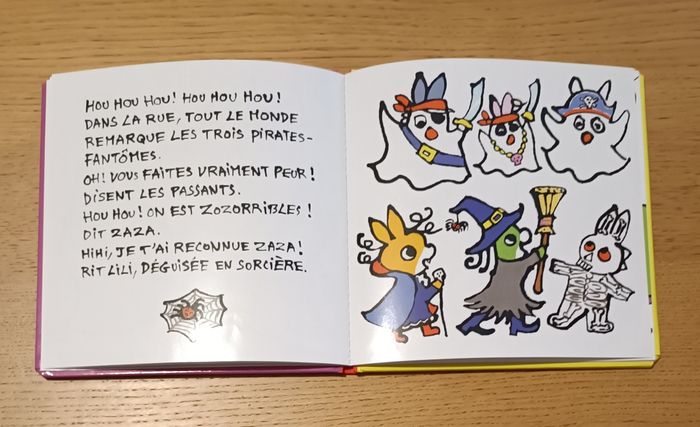 HOU HOU HOU! HOU HOU HOU!
DANS LA RUE, TOUT LE MONDE
REMARQUE LES TROIS PIRATES-
FANTÔMES.
OH! VOUS FAITES VRAIMENT PEUR!
DISENT LES PASSANTS.
HOU HOU! ON EST ZOZORRIBLES!
DIT ZAZA.
HIHI, JE T'AI RECONNUE ZAZA!
RIT LILI, DÉGUISÉE EN SORCIÈRE.